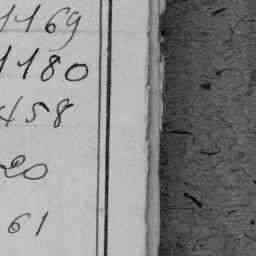 1169
1180
458
20
61